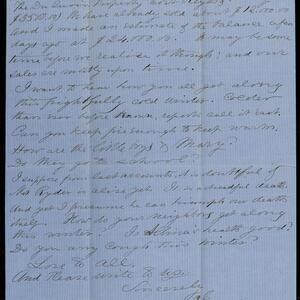 The Du Quoin Property cost Keyes
$55000.00) We have already sold about $12,000.00
and I made an estimate of the balance a few
days ago at $24,000.00. It may be some
time before we realise it though; and our
sales are mostly upon time.
I want to hear how you all get along
this frightfully cold winter. Colder
than ever before known, reports call it east.
Can you keep fires enough to keep warm.
How are the little boys & Mary?
Do they go to school?
I suppose from last accounts, it is doubtful if
Ryder is alive yet. It is a dreadful death
and yet I presume he can triumph over death
. How do your neighbors get along
this winter? Is health good?
Do you any cough this winter?
Love to all,
And Please write to us.
Sincerely